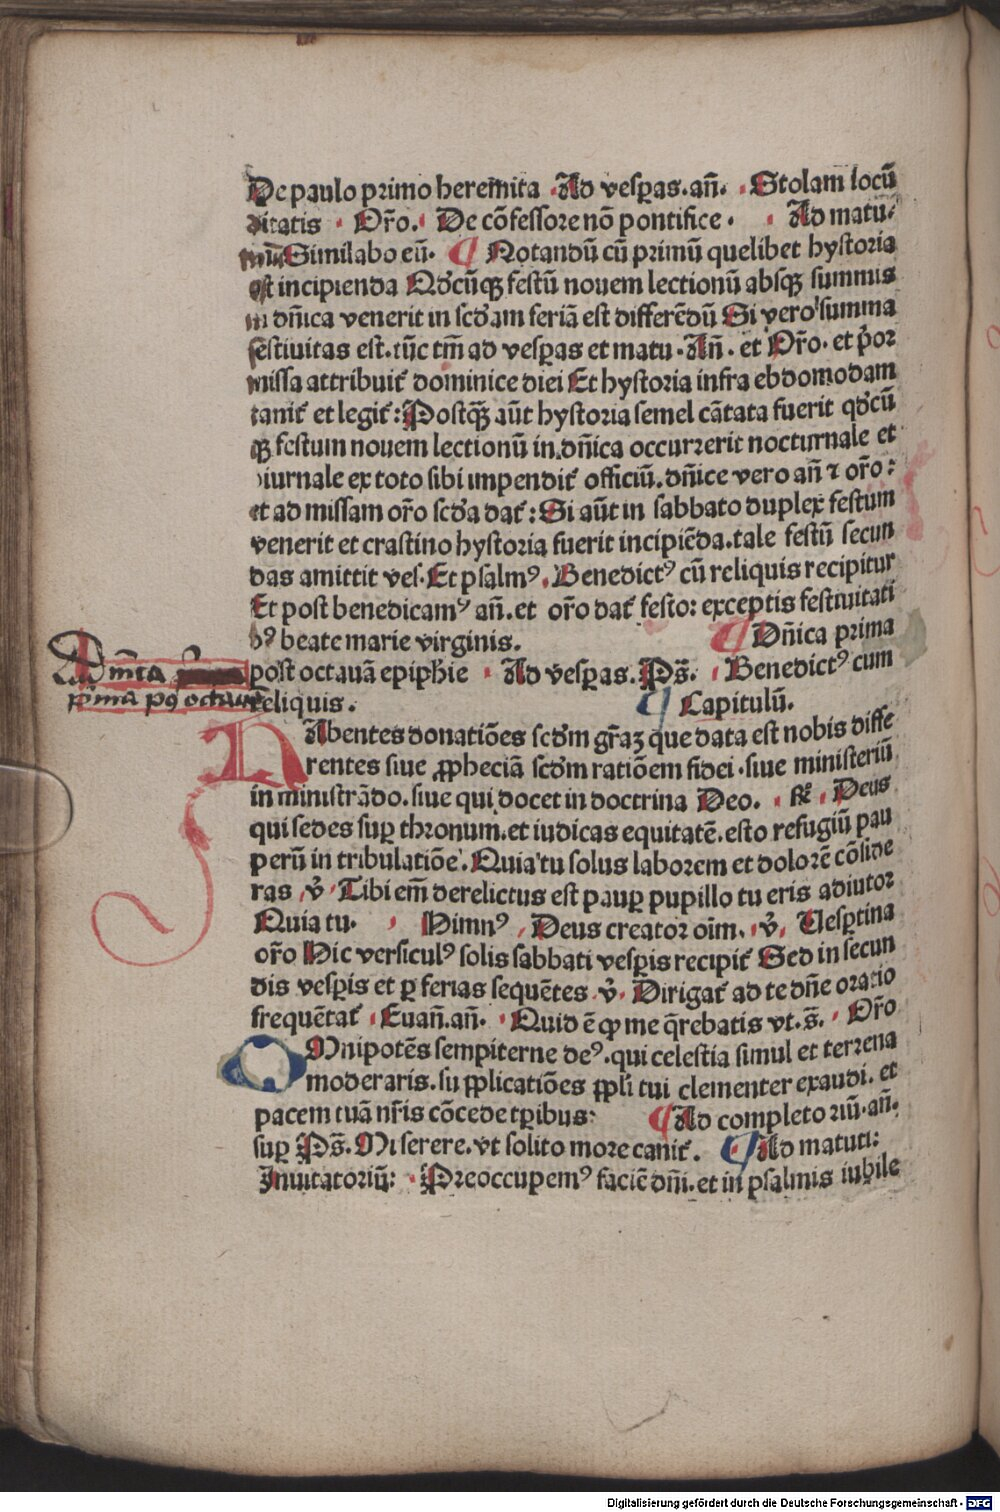 De paulo primo heremita Ad vesꝑas.an̄. Stolam iocū
ditatis Or̄o. De cōfessore nō pontifice. Ad matu⸗
Similabo eū. ¶ Notandū cū primū quelibet hystoria
est incipienda Qd'cūqꝫ festū nouem lectionū absqꝫ summis
in dn̄ica venerit in scd'am feriā est differēdū Si vero summa
festiuitas est.tūc tm̄ ad vesꝑas et matu.An̄. et Or̄o. et p̓or
missa attribuit᷑ dominice diei Et hystoria infra ebdomodam
canit᷑ et legit᷑: Postqꝫ̄ aūt hystoria semel cātata fuerit qd'cū
qꝫ festum nouem lectionū in.dn̄ica occurrerit nocturnale et
diurnale ex toto sibi impendit᷑ officiū.dn̄ice vero an̄ ⁊ or̄o:
et ad missam or̄o scd'a dat᷑: Si aūt in sabbato duplex festum
venerit et crastino hystoria fuerit incipiēda.tale festū secun
das amittit ves. Et psalmꝰ. Benedictꝰ cū reliquis recipitur
Et post benedicamꝰ an̄.et or̄o dat᷑ festo: exceptis festiuitati
bꝰ beate marie virginis. ¶ Dn̄ica prima
post octauā epiph̄ie Ad vesꝑas. Ps̄. Benedictꝰ cum
reliquis. ¶ Capitulū.
Habentes donatiōes scd'm gr̄aꝫ que data est nobis diffe
rentes siue ꝓpheciā scd'm ratiōem fidei.siue ministeriū
in ministrādo.siue qui docet in doctrina Deo. R̄ Deus
qui sedes suꝑ thronum.et iudicas equitatē.esto refugiū pau
perū in tribulatiōe. Quia tu solus laborem et dolorē cōside
ras v̓ Tibi em̄ derelictus est pauꝑ pupillo tu eris adiutor
Quia tu. Himnꝰ Deus creator oīm. v̓. Vesꝑtina
or̄o Hic versiculꝰ solis sabbati vesꝑis recipit᷑ Sed in secun
dis vesꝑis et ꝑ ferias sequētes v̓ Dirigat᷑ ad te dn̄e oratio
frequētat᷑ Euan̄.an̄. Quid ē ꝙ me q̄rebatis vt.s̄. Or̄o
Omnipotēs sempiterne deꝰ.qui celestia simul et terrena
moderaris.supplicatiōes ꝓpl̓i tui clementer exaudi.et
pacem tuā nr̄is cōcede tꝑibus: ¶ Ad completoriū.an̄.
suꝑ Ps̄. Miserere.vt solito more canit᷑. ¶ Ad matuti:
Inuitatoriū: Preoccupemꝰ faciē dn̄i.et in psalmis iubile
Digitalisierung gefördert durch die Deutsche Forschungsgemeinschaft - DFG